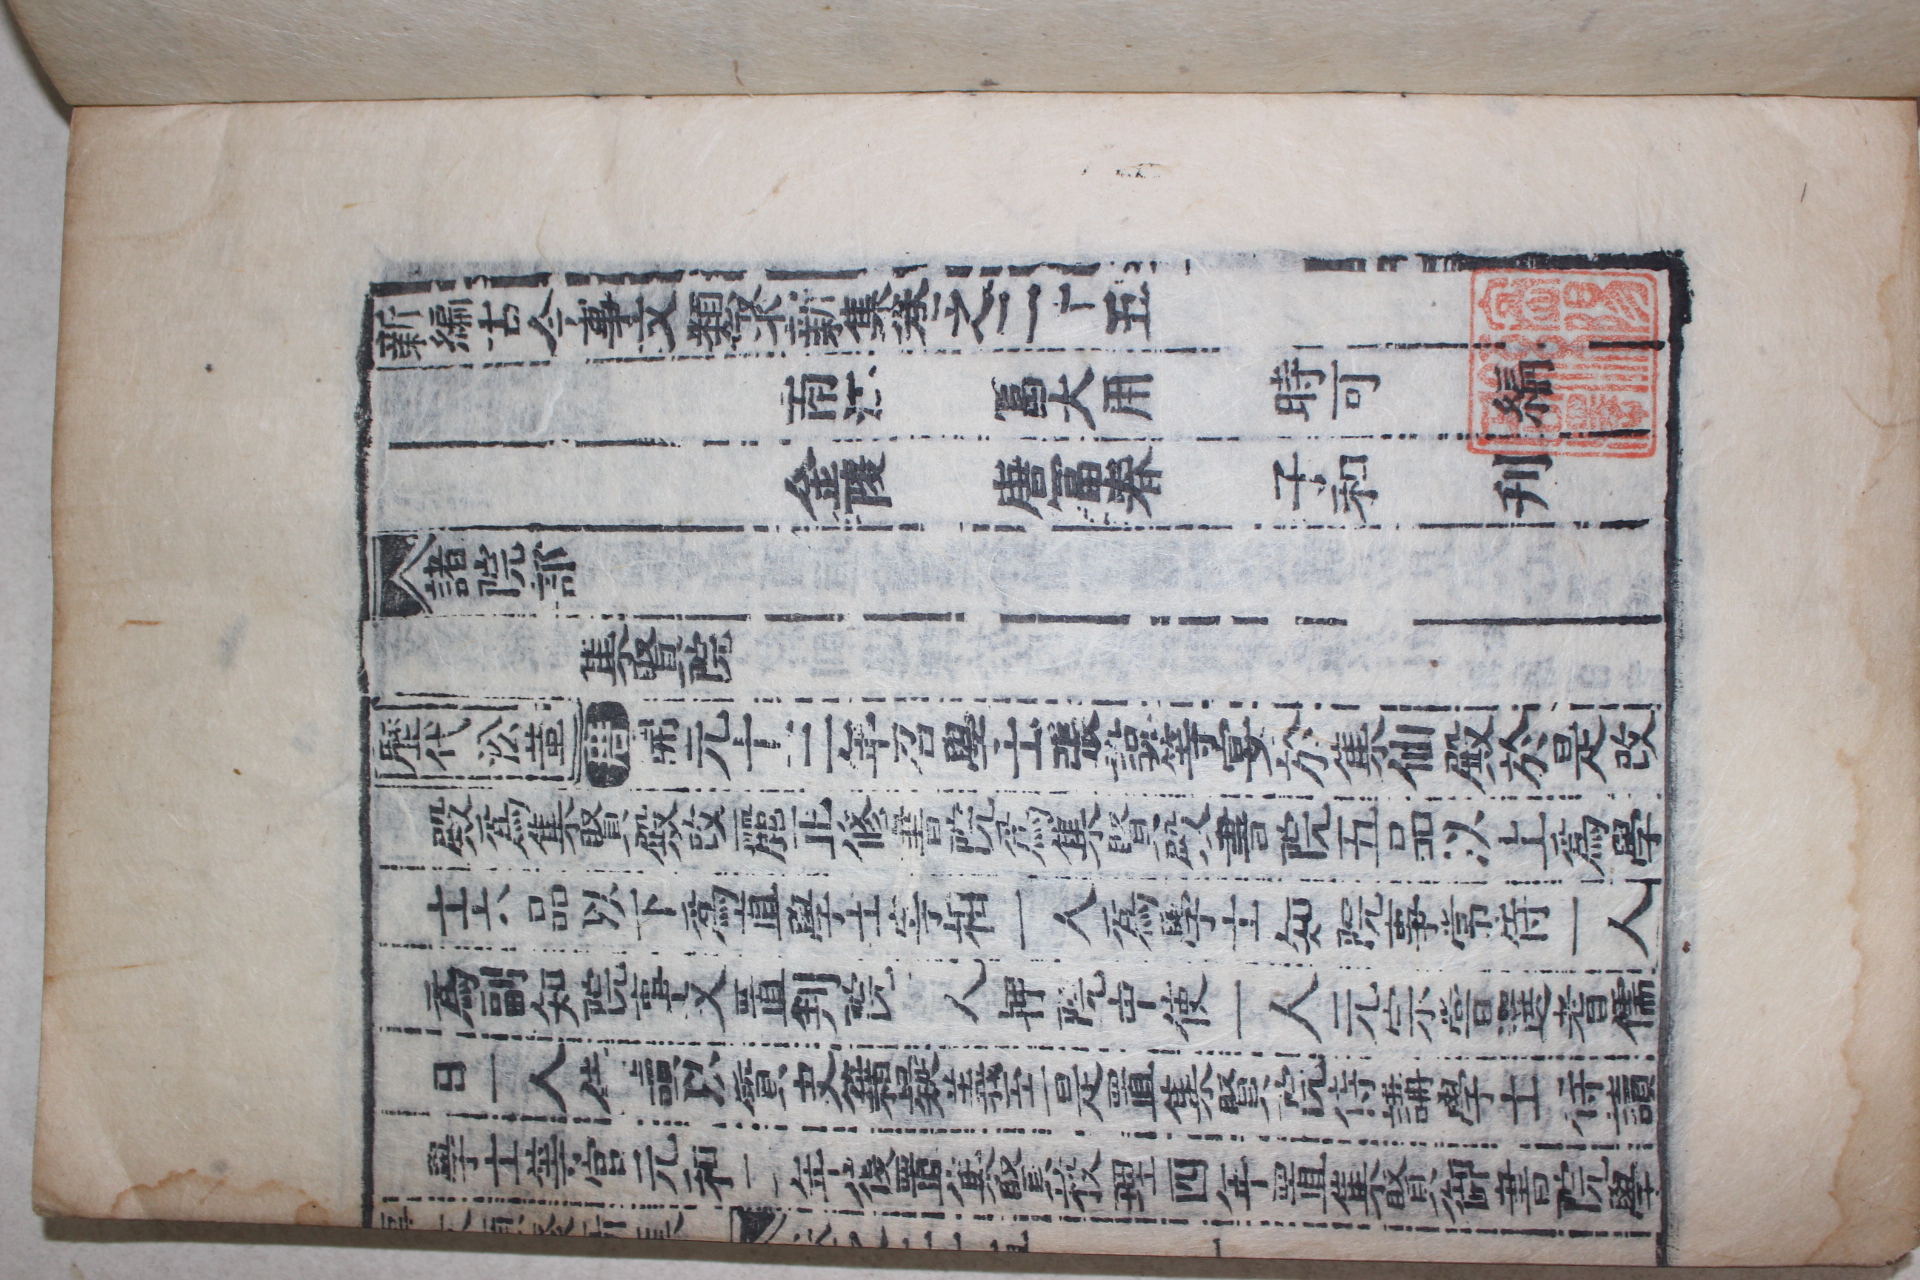 新編古今事文類聚新集卷之二十五
南江 富大用 時可 編
金陵 唐富春 子和 刊
諸院部
集賢院
歷代沿革 唐 開元十二年召學士張說等宴於集仙殿於是改
殿為集賢殿改麗正修書院為集賢殿書院五品以上為學
士六品以下為直學士宰相一人為學士知院事常侍一人
為副知院事又置判院 人押院中使一人元宗嘗選耆儒
日一人侍讀以質史籍疑義至是置集賢院侍講學士侍讀
學士等官元和二年復置集賢校理四年置集賢御書院學